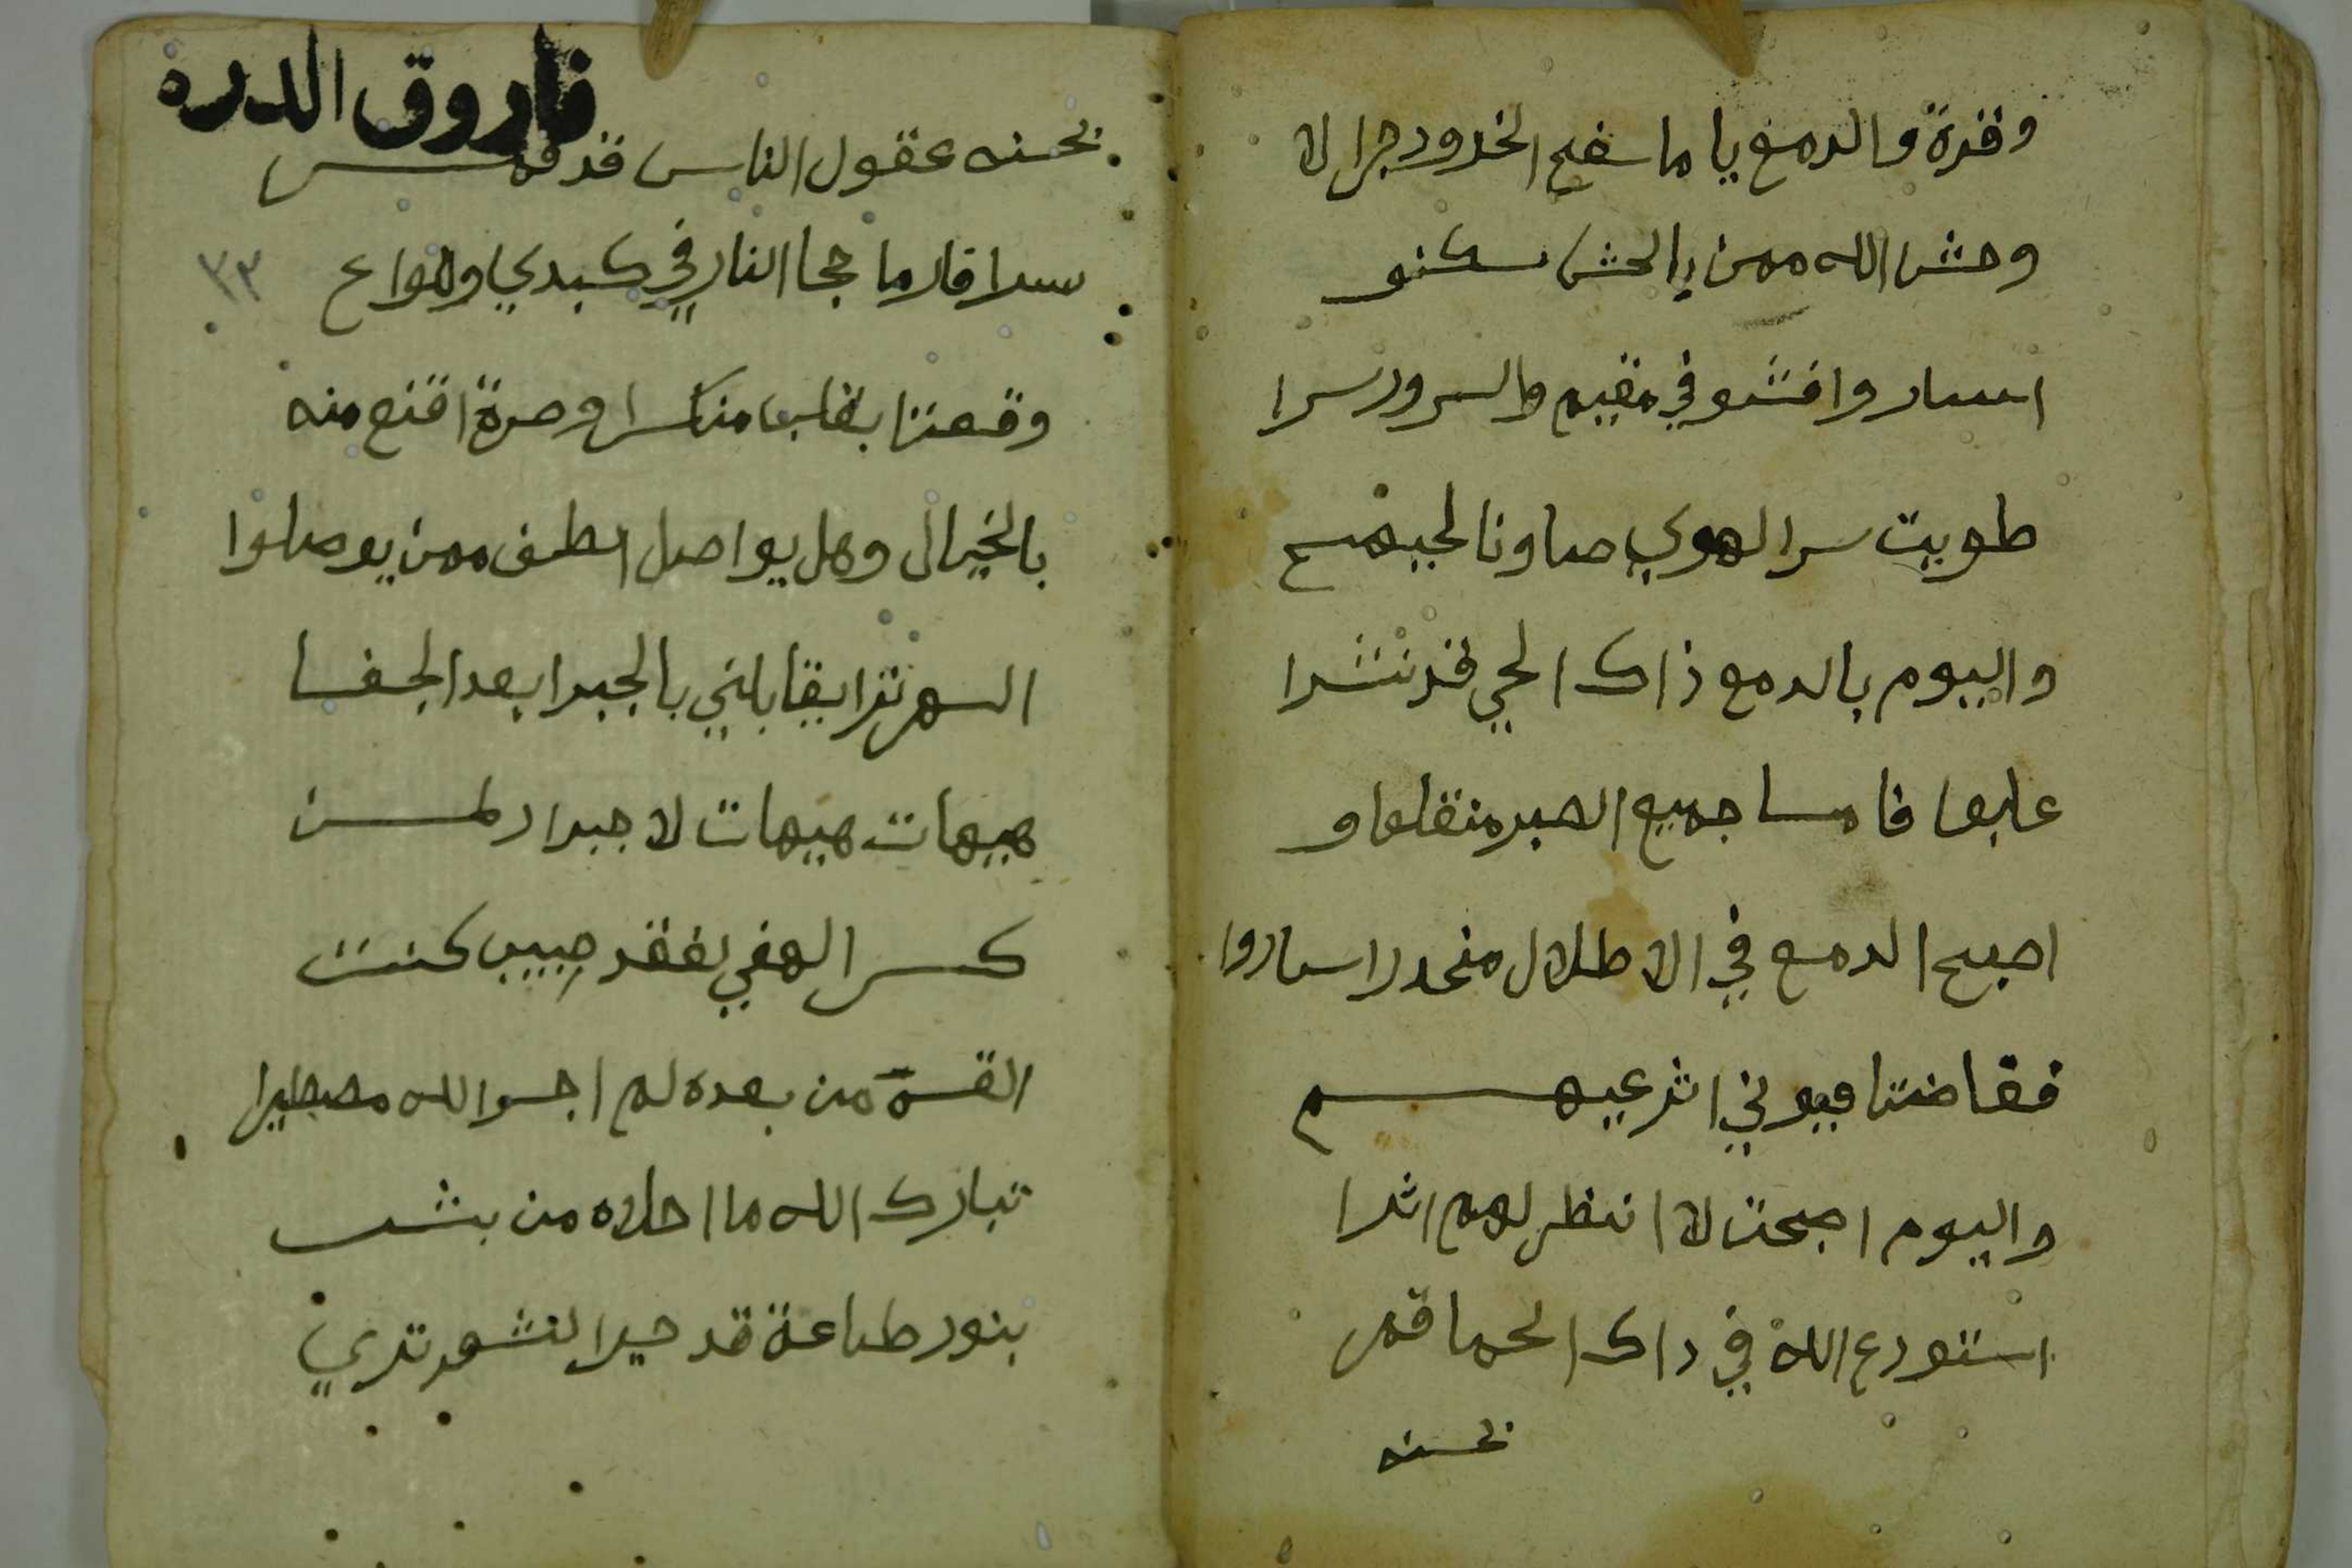 وقدة والدمع ياما سفح الخدود جرا لا
وحش الله ممن بالحش سكنو
اسار وافشو في مقيم والسرور سرا
طويت سر الهوي صاونا لجبهم
واليوم بالدمع ذاك الحي قد نشرا
عليها فامسا جميع الصبر منقلعا و
اصبح الدمع في الاطلال منحدرا ساروا
ففاضتا عيوني اثر عيهم
واليوم اصبحت لا انظر لهم اثرا
استودع الله في داك الحما قمر
بحسنه
فاروق الدره
بحسنه عقول الناس قد قمر
٣٣
سرا فار ما حجا النار في كبدي ولواع
وقعتا بقلبا منكسرا ومرة اقنع منه
بالخيال وهل يواصل الطيف ممن يوصلوا
السهر تترا يقابلني بالجبرا بعد الجفا
هيهات هيهات لا جبرا لمن
كسر الهفي لفقد حبيب كنت
القسه من بعده لم اجسو الله مصطبرا
تبارك الله ما احلاه من بشر
بنور طلعة قد حير الشمس تري